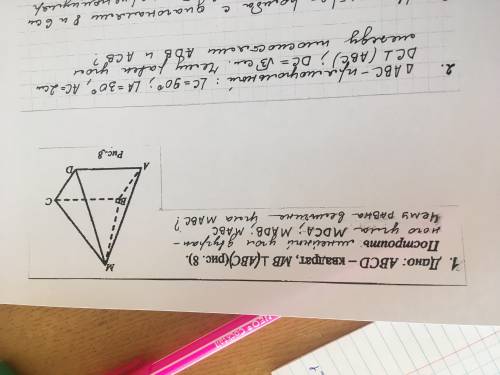 1. Дано: ABCD – квадрат, MB⊥(ABC)(рис. 8).
Построить: линейный угол двугран-
ного угла MDCA; MADB; MABC
Чему равна величина угла MABC?
M
B
C
A
D
Рис. 8
2. ΔABC – прямоугольный: ∠C=90°; ∠A=30°, AC=2см
DC⊥(ABC); DC=√3 см. Чему равен угол
между плоскостями ADB и ACB?
ромба с диагоналями 8 и 6 см